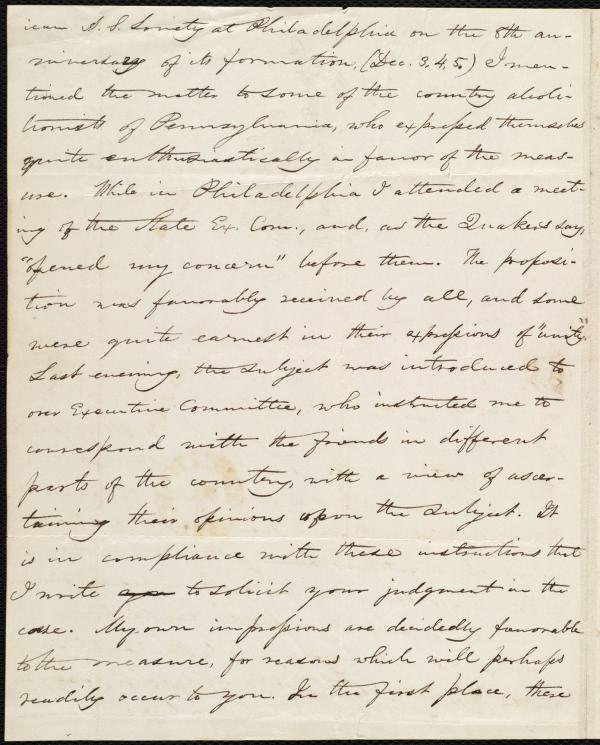 ican A. S. Society at Philadelphia on the 8th an-
niversary of its formation, (Dec. 3, 4, 5,) I men-
tioned the matter to some of the country aboli-
tionists of Pennsylvania, who expressed themselves
quite enthusiastically in favor of the meas-
ure. While in Philadelphia I attended a meet-
ing of the State Ex. Com., and, as the Quakers say,
"opened my concern" before them. The proposi-
tion was favorably received by all, and some
were quite earnest in their expressions of "unity."
Last evening, the subject was introduced to
our Executive Committee, who instructed me to
correspond with the friends in different
parts of the country, with a view of ascer-
taining their opinions upon the subject. It
is in compliance with these instructions that
I write you to solicit your judgment in the
case. My own impressions are decidedly favorable
to the measure, for reasons which will perhaps
readily occur to you. In the first place, these